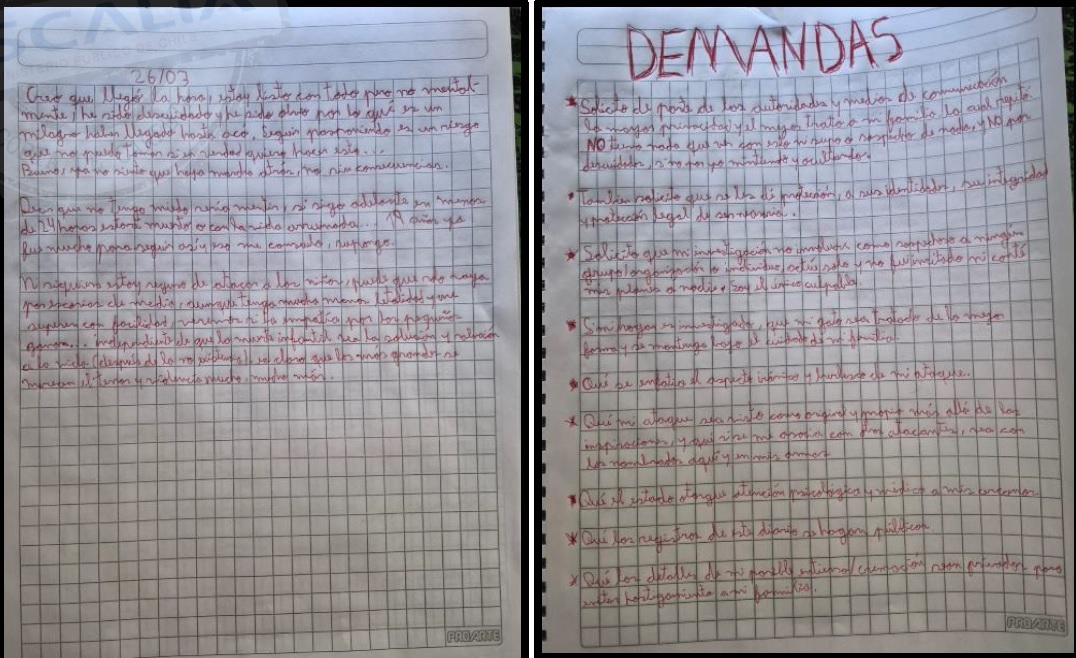 FISCALIA
MINISTERIO PUBLICO DE CHILE
26/03
Creo que llegó la hora, estoy listo con todo pero no mental-
mente, he sido descuidado y he sido obvio por lo qué es un
milagro haber llegado hasta acá. Seguir posponiendo es un riesgo
que no puedo tomar si en verdad quiero hacer esto...
Bueno, ya no siento que haya marcha atrás, no sin consecuencias.
Decir que no tengo miedo sería mentir, si sigo adelante en menos
de 24 horas estaré muerto o con la vida arruinada... años ya
fue mucho para seguir así, eso me consuela, supongo.
Ni siquiera estoy seguro de atacar a los niños, puede que solo vaya
por secarios de media, aunque tenga mucha menor letalidad y me
superen con facilidad, veremos si la empatía por los pequeños
ganara... Independiente de que la mente infantil sea la solución y salvación
a la vida (después de la no existencia), es claro que los más grandes se
merecen el terror y violencia mucho, mucho más.
DEMANDAS
* Solicito de parte de las autoridades y medios de comunicación
la mayor privacidad y el mejor trato a mi familia la cual repito
NO tiene nada que ver con esto ni supo o sospechó de nada, y NO por
descuidados, sino por yo mintiendo y ocultando.
* También solicito que se les dé protección, a sus identidades, su integridad
y protección legal de ser necesario.
* Solicito que mi investigación no involucre como sospechoso a ningún
grupo/organización o individuo, actúo solo y no fui incitado ni conté
mis planes a nadie, soy el único culpable.
* Si mi hogar es investigado, que mi gato sea tratado de la mejor
forma y se mantenga bajo el cuidado de mi familia.
* Qué se enfatice el aspecto irónico y burlesco de mi ataque.
* Qué mi ataque sea visto como original y propio más allá de las
inspiraciones, y qué si se me asocia con otros atacantes, sea con
los nombrados aquí y en mis armas
* Qué el estado otorgue atención psicológica y médica a mis cercanos
* Qué los registros de este diario se hagan públicos
* Qué los detalles de mi posible entierro/cremación sean privados para
evitar hostigamiento a mi familia.
PROARTE
PROARTE